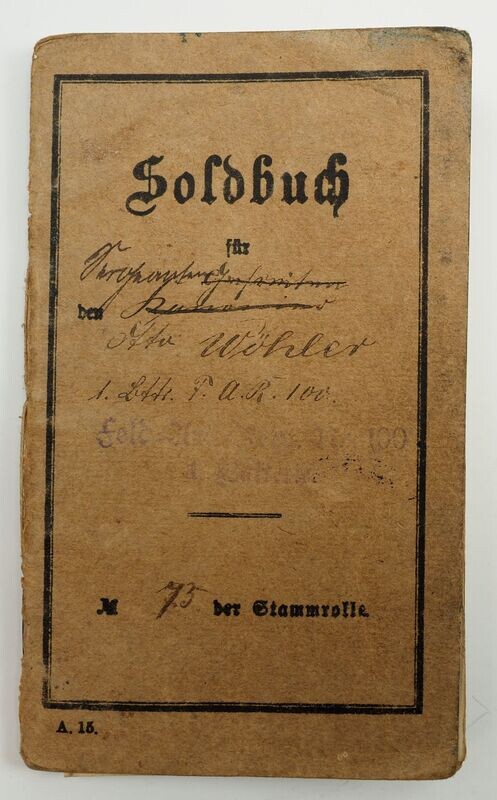 Soldbuch
für
Sergeanten Gefreiten
den Kanonier
Otto Wöhler
1. Bttr. F. A. R. 100.
Feld 100
1.
№ 75 der Stammrolle.
A. 15.